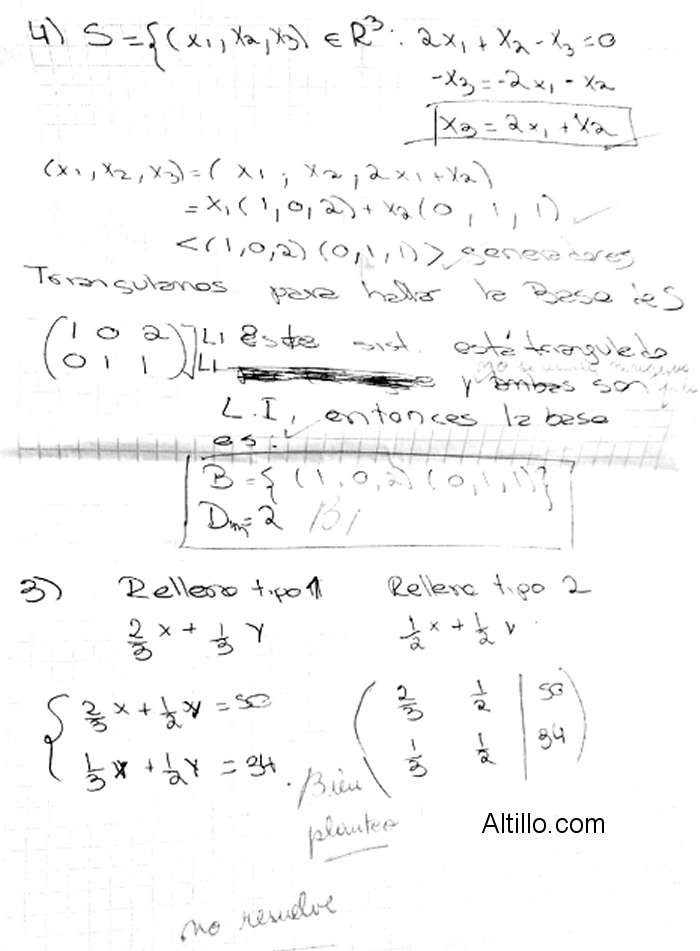 4) S = {(x₁, x₂, x₃) ∈ R³: 2x₁ + x₂ - x₃ = 0
-x₃ = -2x₁ - x₂
x₃ = 2x₁ + x₂
(x₁, x₂, x₃) = ( x₁, x₂, 2x₁ + x₂)
= x₁ (1, 0, 2) + x₂ (0, 1, 1)
<(1,0,2) (0,1,1)> generadores
Triangulamos para hallar la Base de S
(1 0 2) LI Este sist. está triangulado
(0 1 1) LI y ambas son
L.I, entonces la base
es:
B = {(1,0,2) (0,1,1)}
Dm = 2 B
3) Relleno tipo 1 Relleno tipo 2
2/3 x + 1/3 y 1/2 x + 1/2 y
{ 2/3 x + 1/2 y = 50 ( 2/3 1/2 | 50
1/3 x + 1/2 y = 34. 1/3 1/2 | 34 )
Bien
planteo
Altillo.com
no resuelve